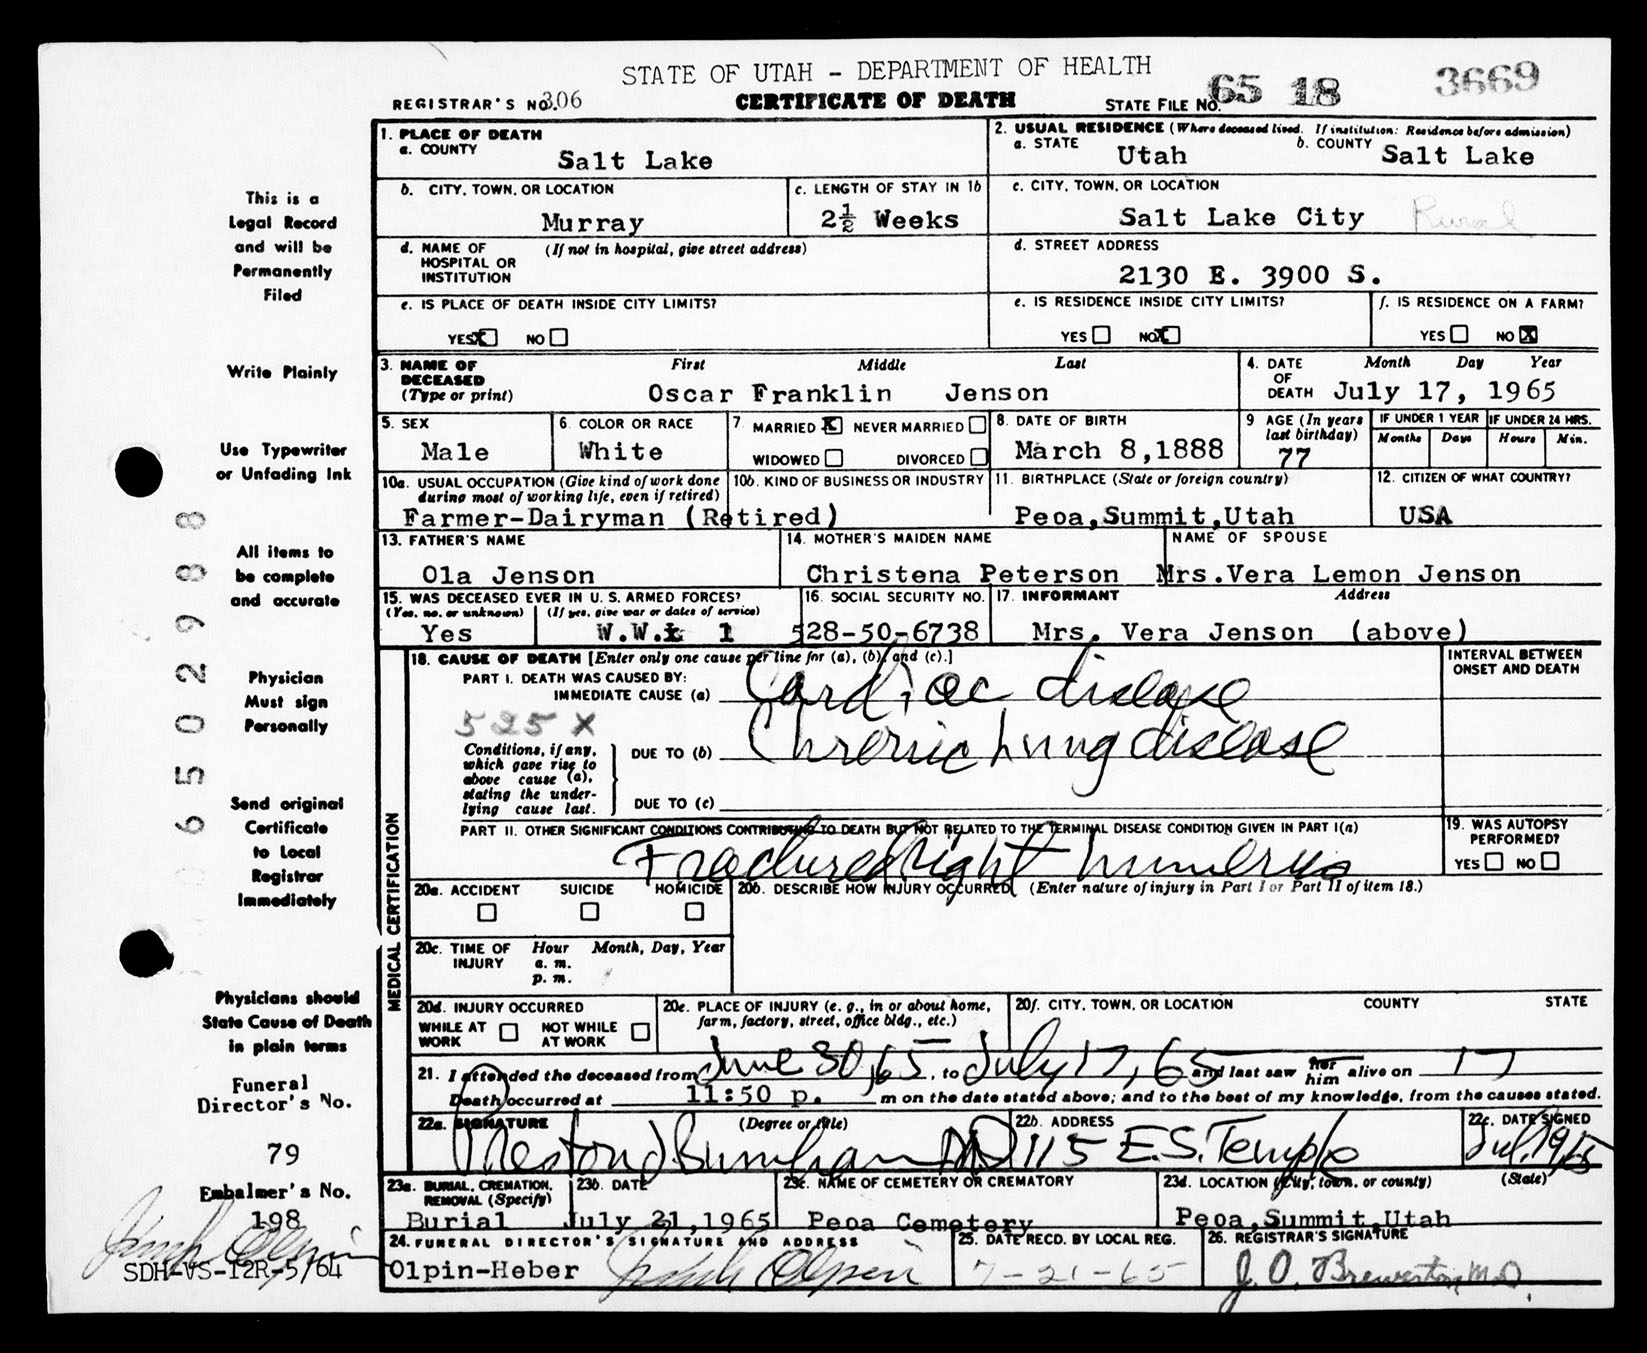 STATE OF UTAH - DEPARTMENT OF HEALTH
REGISTRAR'S NO. 306
CERTIFICATE OF DEATH
STATE FILE NO. 65 18 3669
This is a
Legal Record
and will be
Permanently
Filed
Write Plainly
Use Typewriter
or Unfading Ink
All items to
be complete
and accurate
Physician
Must sign
Personally
Send original
Certificate
to Local
Registrar
Immediately
Physicians should
State Cause of Death
in plain terms
Funeral
Director's No.
79
Embalmer's No.
198
SDH-VS-12R-5/64
06502988
1. PLACE OF DEATH
a. COUNTY
Salt Lake
2. USUAL RESIDENCE (Where deceased lived. If institution: Residence before admission)
a. STATE Utah
b. COUNTY Salt Lake
b. CITY, TOWN, OR LOCATION
Murray
c. LENGTH OF STAY IN 1b
2½ Weeks
c. CITY, TOWN, OR LOCATION
Salt Lake City Rural
d. NAME OF HOSPITAL OR INSTITUTION (If not in hospital, give street address)
d. STREET ADDRESS
2130 E. 3900 S.
e. IS PLACE OF DEATH INSIDE CITY LIMITS?
YES X NO
e. IS RESIDENCE INSIDE CITY LIMITS?
YES NO X
f. IS RESIDENCE ON A FARM?
YES NO X
3. NAME OF DECEASED (Type or print)
First Middle Last
Oscar Franklin Jenson
4. DATE OF DEATH
Month Day Year
July 17, 1965
5. SEX
Male
6. COLOR OR RACE
White
7. MARRIED X NEVER MARRIED
WIDOWED DIVORCED
8. DATE OF BIRTH
March 8,1888
9 AGE (In years last birthday)
77
IF UNDER 1 YEAR
Months Days
IF UNDER 24 HRS.
Hours Min.
10a. USUAL OCCUPATION (Give kind of work done during most of working life, even if retired)
10b. KIND OF BUSINESS OR INDUSTRY
Farmer-Dairyman (Retired)
11. BIRTHPLACE (State or foreign country)
Peoa,Summit,Utah
12. CITIZEN OF WHAT COUNTRY?
USA
13. FATHER'S NAME
Ola Jenson
14. MOTHER'S MAIDEN NAME
Christena Peterson
NAME OF SPOUSE
Mrs.Vera Lemon Jenson
15. WAS DECEASED EVER IN U. S. ARMED FORCES?
(Yes, no, or unknown) (If yes, give war or dates of service)
Yes W.W. 1
16. SOCIAL SECURITY NO.
528-50-6738
17. INFORMANT Address
Mrs. Vera Jenson (above)
MEDICAL CERTIFICATION
18. CAUSE OF DEATH [Enter only one cause per line for (a), (b), and (c).]
INTERVAL BETWEEN ONSET AND DEATH
PART I. DEATH WAS CAUSED BY:
IMMEDIATE CAUSE (a) Cardiac disease
525 X
Conditions, if any, which gave rise to above cause (a), stating the underlying cause last.
DUE TO (b) Chronic Lung disease
DUE TO (c)
PART II. OTHER SIGNIFICANT CONDITIONS CONTRIBUTING TO DEATH BUT NOT RELATED TO THE TERMINAL DISEASE CONDITION GIVEN IN PART I(a)
Fractured Right humerus
19. WAS AUTOPSY PERFORMED?
YES NO
20a. ACCIDENT SUICIDE HOMICIDE
20b. DESCRIBE HOW INJURY OCCURRED. (Enter nature of injury in Part I or Part II of item 18.)
20c. TIME OF INJURY
Hour Month, Day, Year
a. m.
p. m.
20d. INJURY OCCURRED
WHILE AT WORK NOT WHILE AT WORK
20e. PLACE OF INJURY (e. g., in or about home, farm, factory, street, office bldg., etc.)
20f. CITY, TOWN, OR LOCATION COUNTY STATE
21. I attended the deceased from June 30, 65, to July 17, 65 and last saw her him alive on 17
Death occurred at 11:50 p. m on the date stated above; and to the best of my knowledge, from the causes stated.
22a. SIGNATURE (Degree or title)
Preston J. Burnham MD
22b. ADDRESS
115 E.S. Temple
22c. DATE SIGNED
23a. BURIAL, CREMATION, REMOVAL (Specify)
Burial
23b. DATE
July 21,1965
23c. NAME OF CEMETERY OR CREMATORY
Peoa Cemetery
23d. LOCATION (City, town, or county) (State)
Peoa,Summit,Utah
24. FUNERAL DIRECTOR'S SIGNATURE AND ADDRESS
Olpin-Heber
25. DATE RECD. BY LOCAL REG.
7-21-65
26. REGISTRAR'S SIGNATURE
J. O. Brewerton M.D.